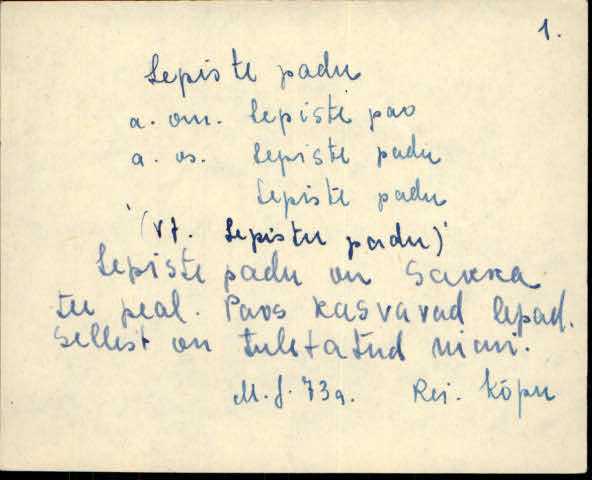 1.
Lepiste padu
a. om. Lepiste pao
a. os. Lepiste padu
Lepiste padu
(vt. Lepistu padu)
Lepiste padu on Sakka
tee peal. Paos kasvavad lepad.
Sellest on tuletatud nimi.
M. J. 73a. Rei. Kõpu